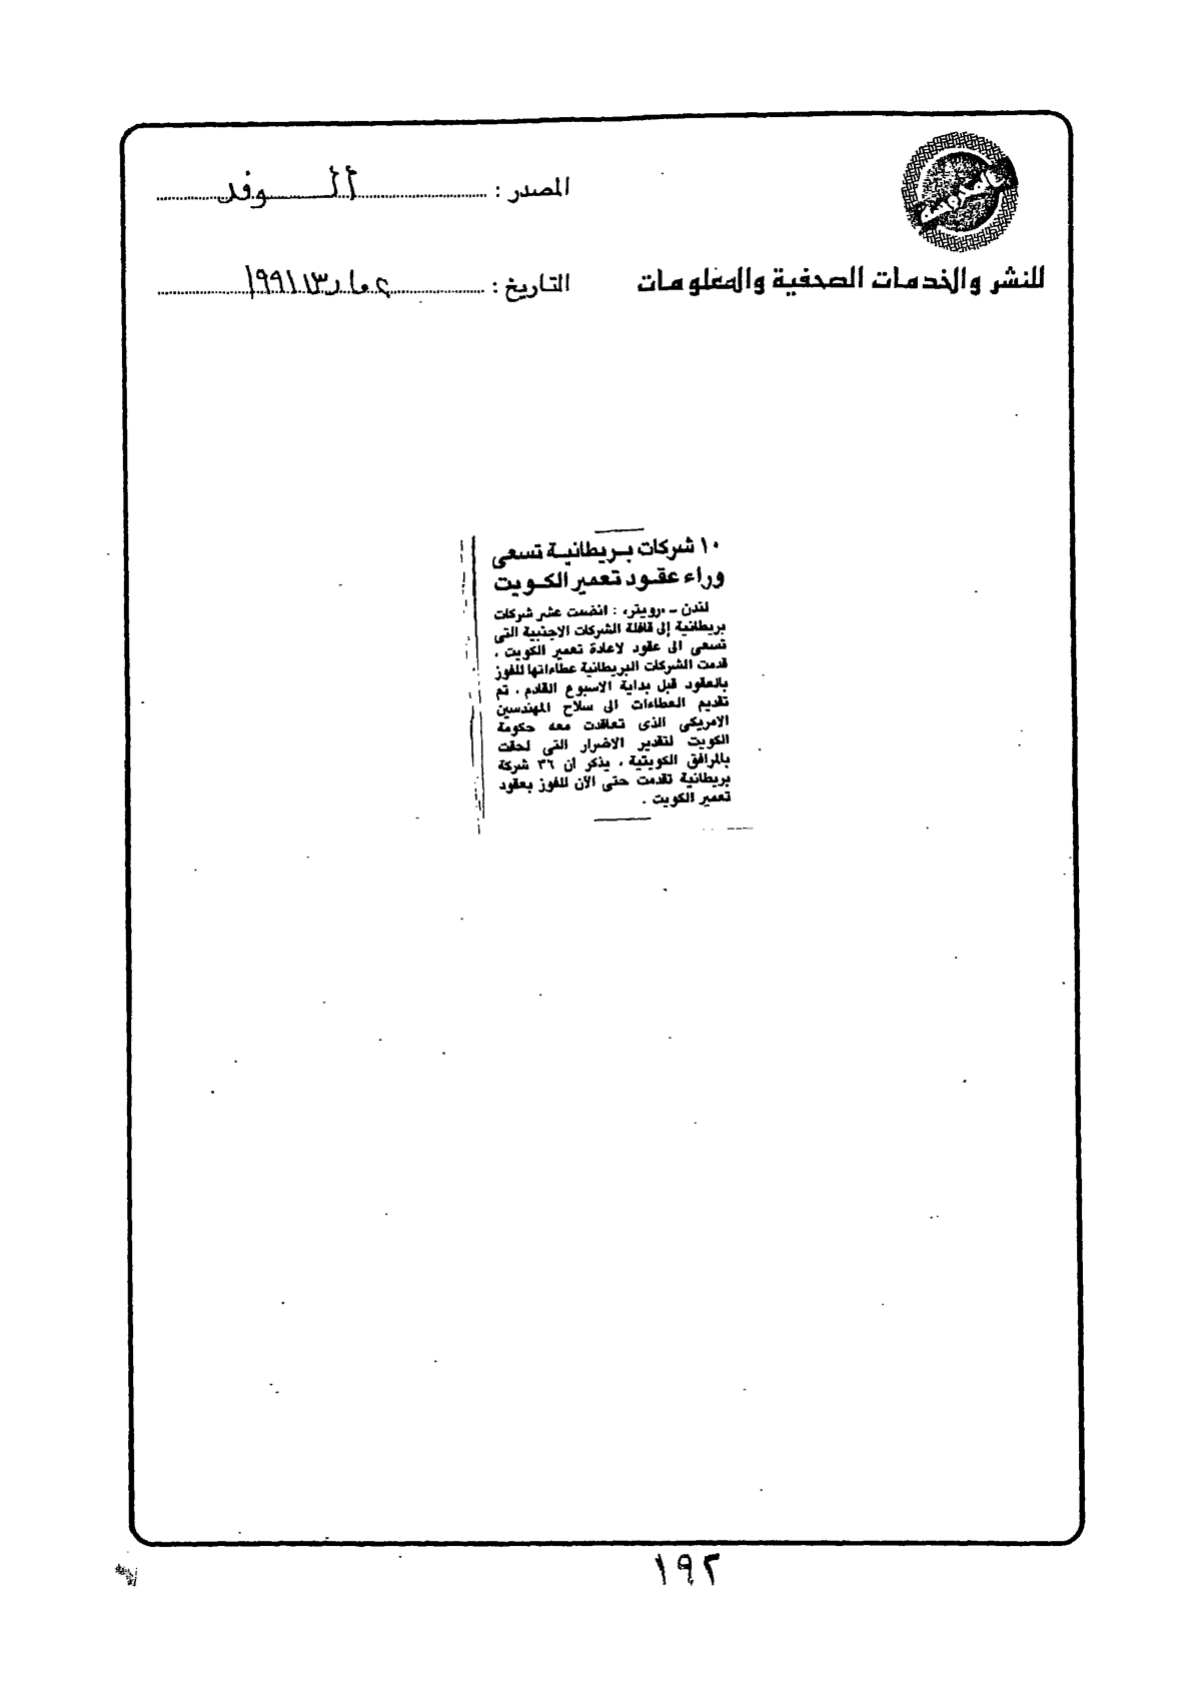 المصدر : الوفد
للنشر والخدمات الصحفية والمعلومات
التاريخ : ٢ مارس ١٩٩١
١٠ شركات بريطانية تسعى
وراء عقود تعمير الكويت
لندن - «رويتر» : انضمت عشر شركات
بريطانية إلى قافلة الشركات الاجنبية التى
تسعى الى عقود لاعادة تعمير الكويت .
قدمت الشركات البريطانية عطاءاتها للفوز
بالعقود قبل بداية الاسبوع القادم . تم
تقديم العطاءات الى سلاح المهندسين
الامريكى الذى تعاقدت معه حكومة
الكويت لتقدير الاضرار التى لحقت
بالمرافق الكويتية . يذكر ان ٣٦ شركة
بريطانية تقدمت حتى الآن للفوز بعقود
تعمير الكويت .
١٩٢